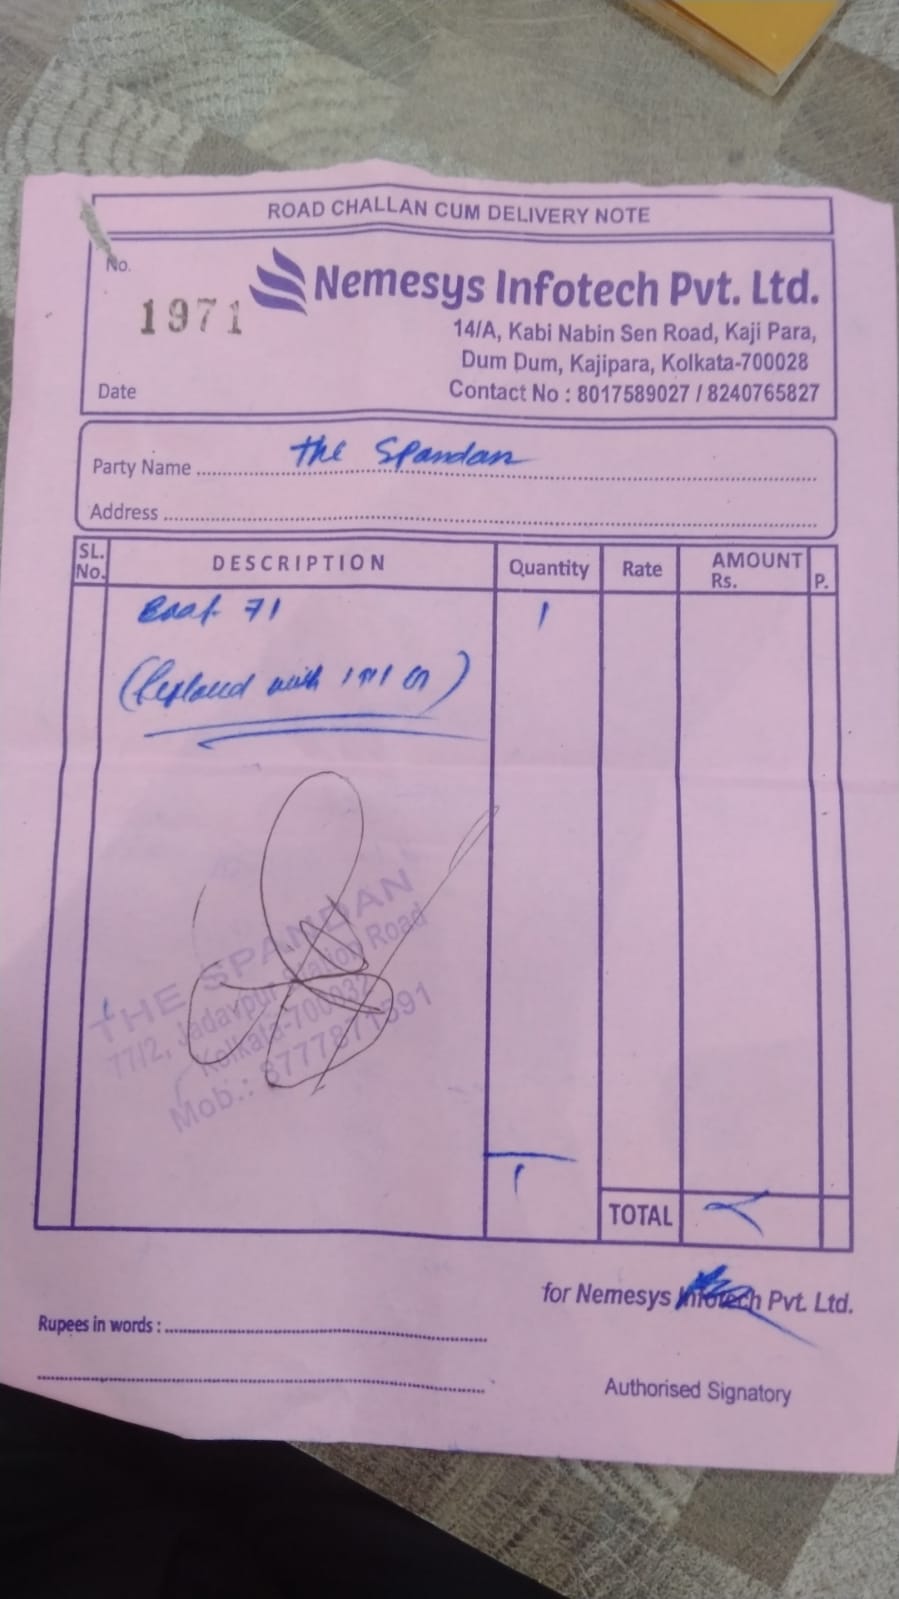 ROAD CHALLAN CUM DELIVERY NOTE
No.
1971
Nemesys Infotech Pvt. Ltd.
14/A, Kabi Nabin Sen Road, Kaji Para,
Dum Dum, Kajipara, Kolkata-700028
Contact No : 8017589027 / 8240765827
Date
Party Name the Spandan
Address
SL. No. DESCRIPTION Quantity Rate AMOUNT Rs. P.
71 1
with
THE SPANDAN
77/2, Jadavpur Station Road
Kolkata-700032
Mob.:
1
TOTAL
for Nemesys Infotech Pvt. Ltd.
Rupees in words :
Authorised Signatory